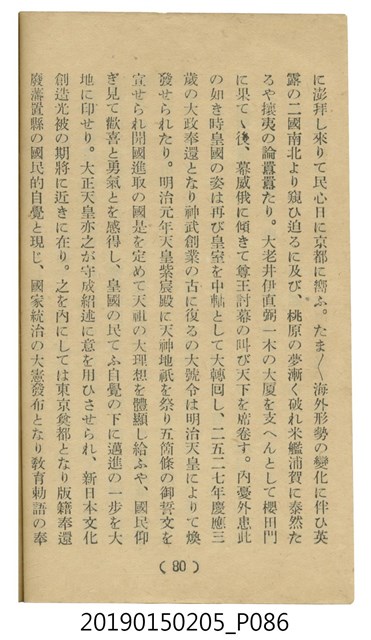 に澎拜し來りて民心日に京都に嚮ふ。たま〱海外形勢の變化に伴ひ英
露の二國南北より窺ひ迫るに及び、桃原の夢漸く破れ米艦浦賀に泰然た
るや攘夷の論囂囂たり。大老井伊直弼一木の大廈を支へんとして櫻田門
に果てゝ後、幕威俄に傾きて尊王討幕の叫び天下を席卷す。内憂外患此
の如き時皇國の姿は再び皇室を中軸として大轉囘し、二五二七年慶應三
歳の大政奉還となり神武創業の古に復るの大號令は明治天皇によりて煥
發せられたり。明治元年天皇紫宸殿に天神地祇を祭り五箇條の御誓文を
宣せられ開國進取の國是を定めて天祖の大理想を體顯し給ふや、國民仰
ぎ見て歡喜と勇氣とを感得し、皇國の民てふ自覺の下に邁進の一步を大
地に印せり。大正天皇亦之が守成紹述に意を用ひさせられ、新日本文化
創造光被の期將に近きに在り。之を内にしては東京奠都となり版籍奉還
廢藩置縣の國民的自覺と現じ、國家統治の大憲發布となり敎育勅語の奉
(80)
20190150205_P086